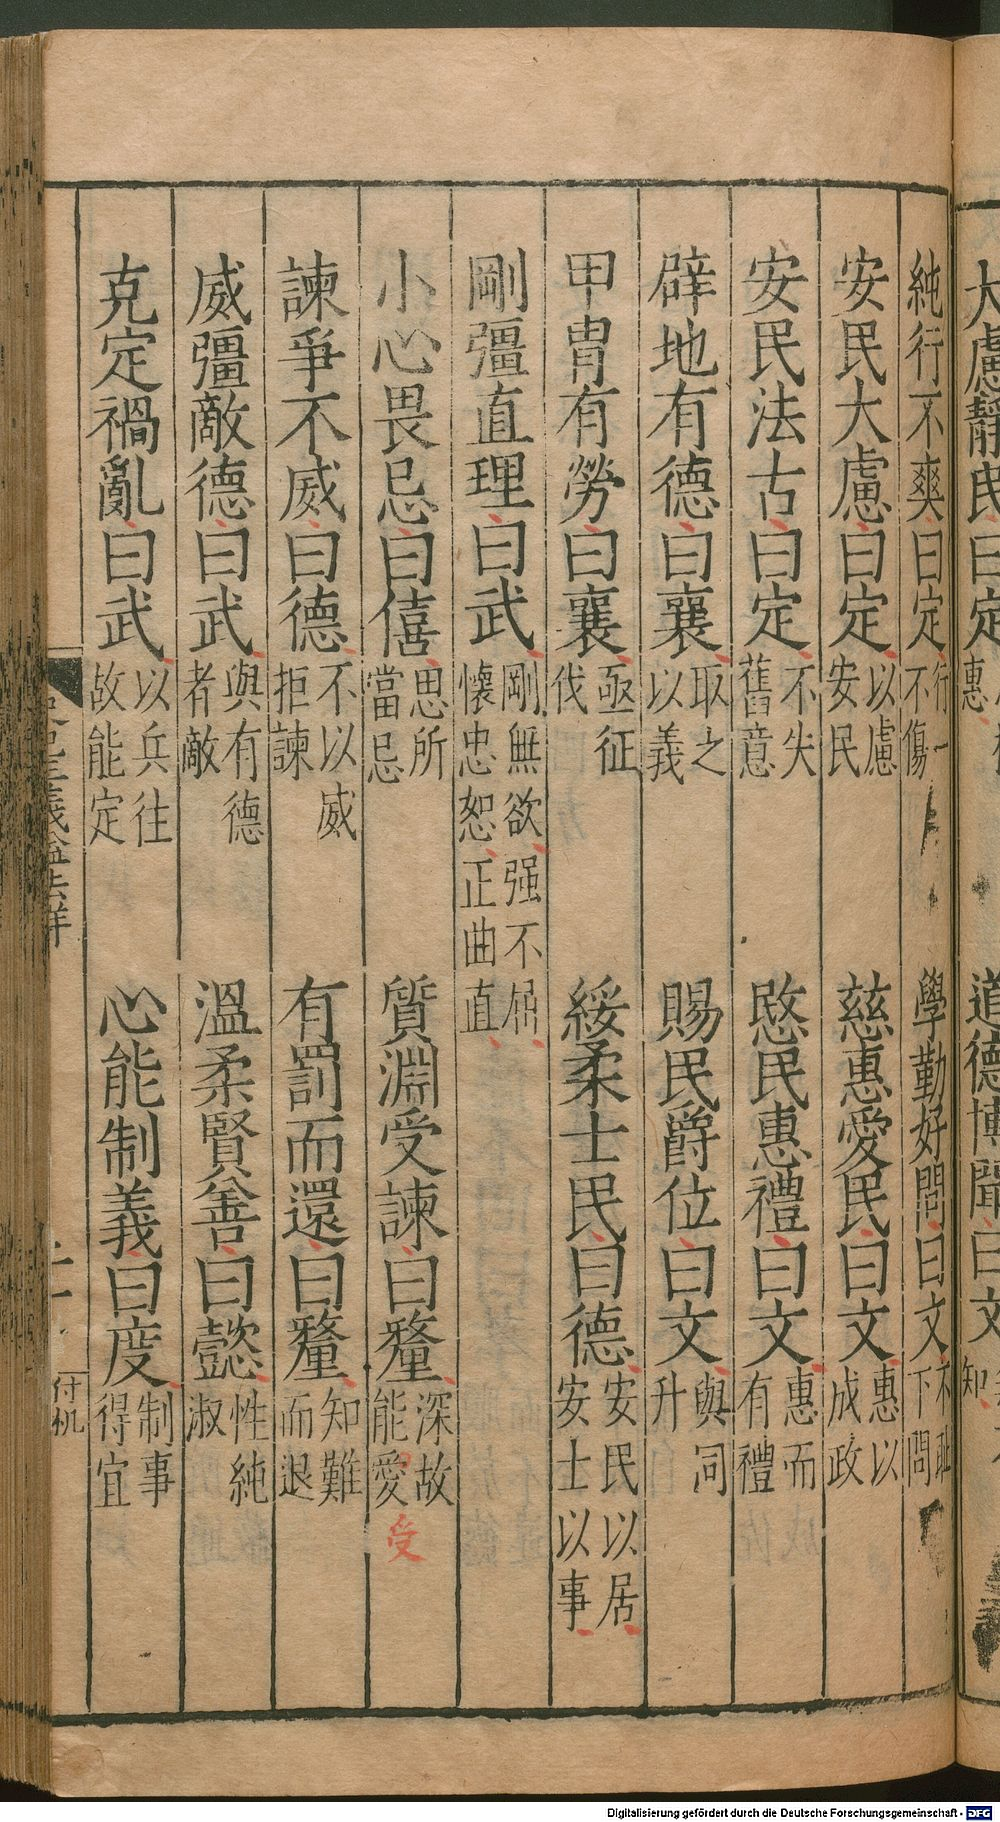 大慮靜民曰定
惠
道德博聞曰文
知
純行不爽曰定 行一不傷 學勤好問曰文 不恥下問
安民大慮曰定 以慮安民 慈惠愛民曰文 惠以成政
安民法古曰定 不失舊意 愍民惠禮曰文 惠而有禮
辟地有德曰襄 取之以義 賜民爵位曰文 與同升
甲冑有勞曰襄 亟征伐 綏柔士民曰德 安民以居安士以事
剛彊直理曰武 剛無欲强不屈懷忠恕正曲直
小心畏忌曰僖 思所當忌 質淵受諫曰釐 深故能愛 受
諫爭不威曰德 不以威拒諫 有罰而還曰釐 知難而退
威彊敵德曰武 與有德者敵 溫柔賢善曰懿 性純淑
克定禍亂曰武 以兵往故能定 心能制義曰度 制事得宜
史記正義謚法解
十一
付机
Digitalisierung gefördert durch die Deutsche Forschungsgemeinschaft - DFG